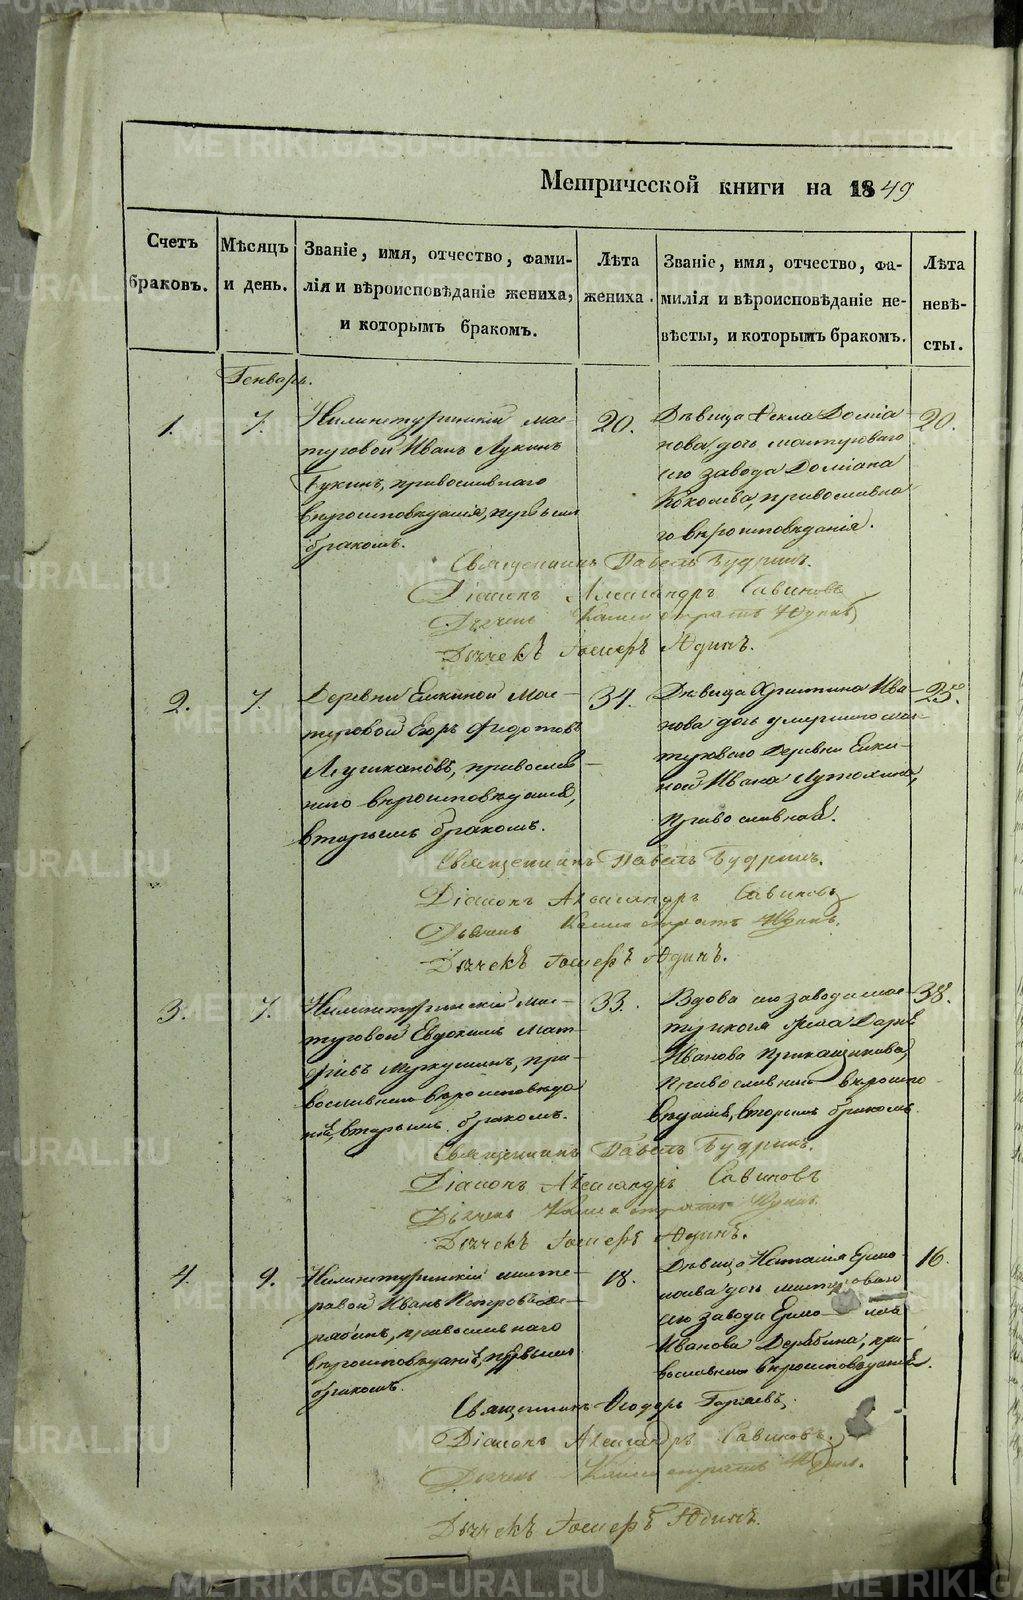 Метрической книги на 1849
Счетъ браковъ.
Мѣсяцъ и день.
Званіе, имя, отчество, фами-
лія и вѣроисповѣданіе жениха,
и которымъ бракомъ.
Лѣта жениха.
Званіе, имя, отчество, фа-
милія и вѣроисповѣданіе не-
вѣсты, и которымъ бракомъ.
Лѣта невѣ-
сты.
Генварь.
1.
7.
Нижнетуринскій мас-
теровой Иванъ Лукинъ
православнаго
вѣроисповѣданія, первымъ
бракомъ.
20.
Дѣвица Фекла Доміа-
нова дочь мастероваго
сего завода Доміана
православна
го вѣроисповѣданія.
20.
Священникъ Павелъ Будринъ.
Діаконъ Александръ Савиновъ
Дьячекъ
Дьячекъ Іосифъ Юдинъ.
2.
7.
Деревни Елкиной мас-
теровой Егоръ Федотовъ
православ
наго вѣроисповѣданія,
вторымъ бракомъ.
34.
Дѣвица Христина Ива
нова дочь умершаго мас-
тероваго Деревни Елки-
ной Ивана
православная.
25.
Священникъ Павелъ Будринъ.
Діаконъ Александръ Савиновъ
Дьячекъ
Дьячекъ Іосифъ Юдинъ.
3.
7.
Нижнетуринскій мас-
теровой Евдокимъ Мат-
фіевъ пра-
вославнаго вѣроисповѣда
нія, вторымъ бракомъ.
33.
Вдова сего завода мас-
терская жена Дарья
Иванова Прикащикова,
православнаго вѣроиспо
вѣданія, вторымъ бракомъ
38.
Священникъ Павелъ Будринъ.
Діаконъ Александръ Савиновъ
Дьячекъ
Дьячекъ Іосифъ Юдинъ.
4.
9.
Нижнетуринскій масте-
ровой Иванъ Петровъ
православнаго
вѣроисповѣданія, первымъ
бракомъ.
18.
Дѣвица Наталія Ермо-
лаева дочь мастероваго
сего завода Ермолая
Иванова Дерябина, пра-
вославнаго вѣроисповѣданія.
16.
Священникъ Ѳеодоръ
Діаконъ Александръ Савиновъ.
Дьячекъ
Дьячекъ Іосифъ Юдинъ.
METRIKI.GASO-URAL.RU